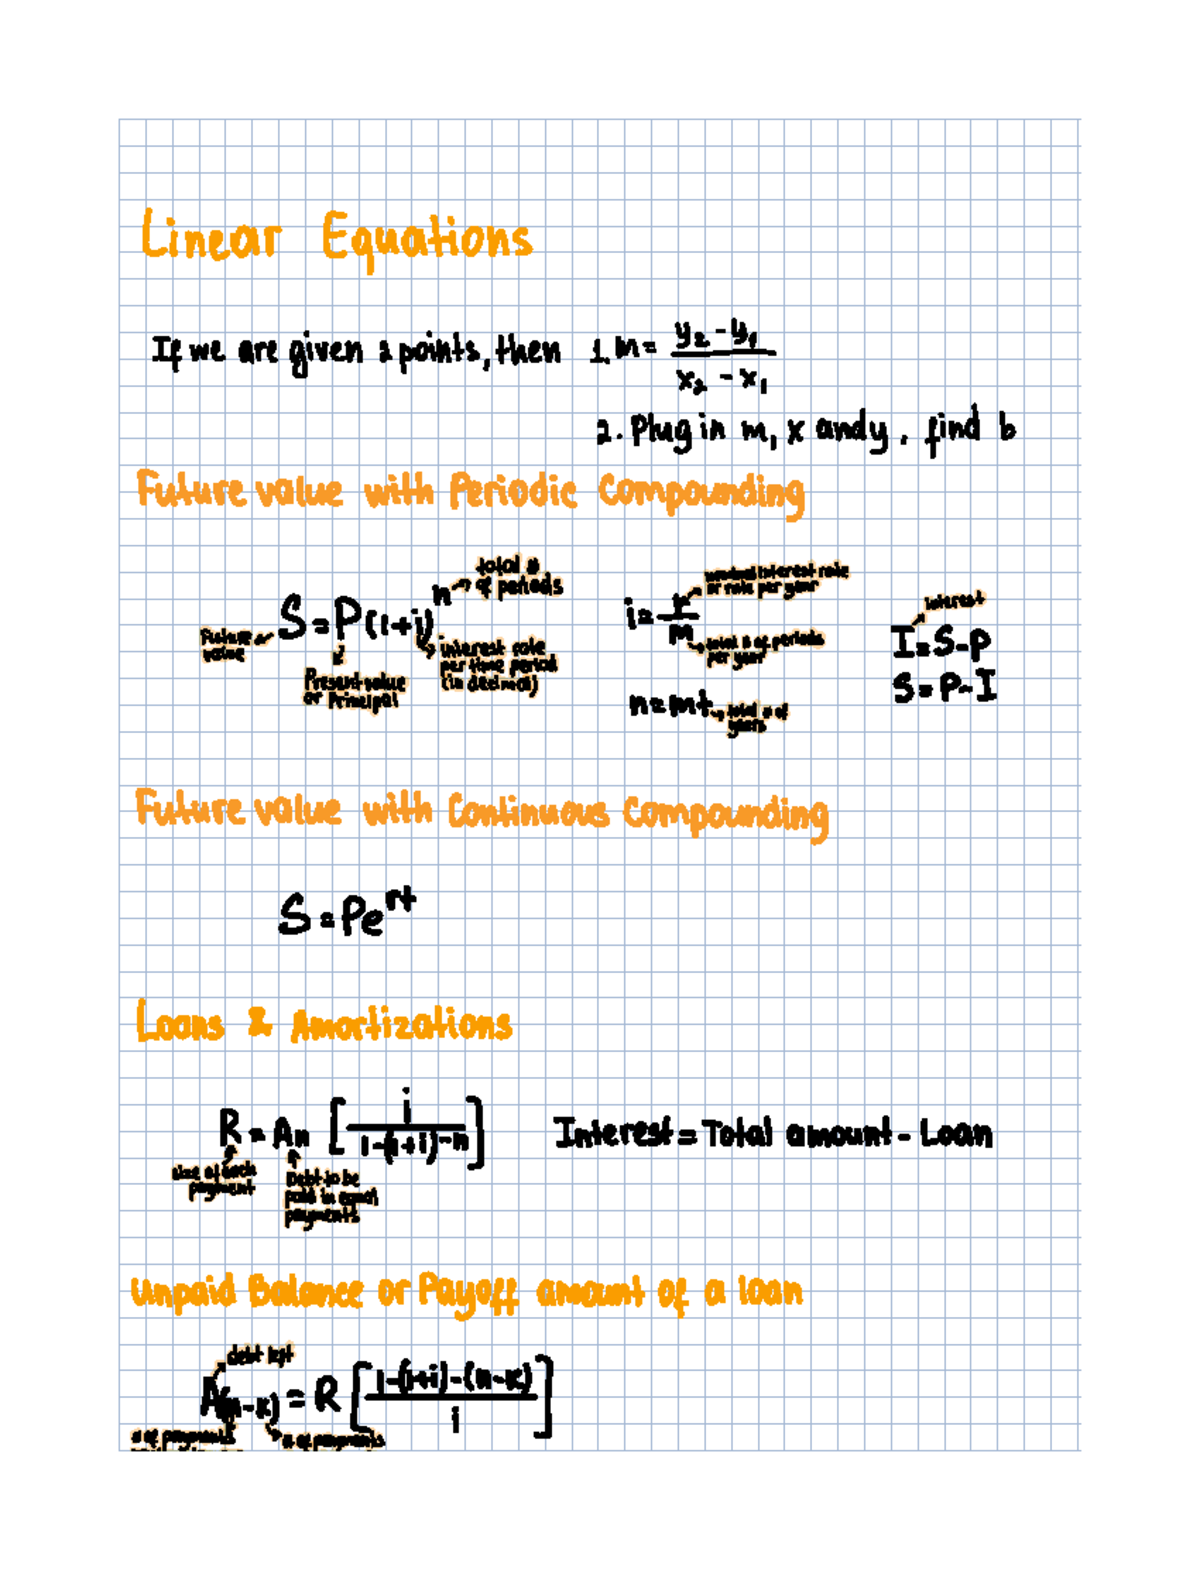 Linear Equations
If we are given 2 points, then 1. m = y₂ - y₁ / x₂ - x₁
2. Plug in m, x and y, find b
Future value with Periodic Compounding
S = P(1+i)ⁿ
total # of periods
Future value
Present value or Principal
interest rate per time period (in decimal)
i = r/m
nominal interest rate or rate per year
total # of periods per year
n = mt
total # of years
interest
I = S - P
S = P - I
Future value with Continuous Compounding
S = Pe^rt
Loans & Amortizations
R = Aₙ [ i / 1-(1+i)^-n ]
Interest = Total amount - Loan
size of each payment
Debt to be paid in equal payments
Unpaid Balance or Payoff amount of a loan
debt left
A(n-k) = R [ 1-(1+i)-(n-k) / i ]
# of payments
# of payments